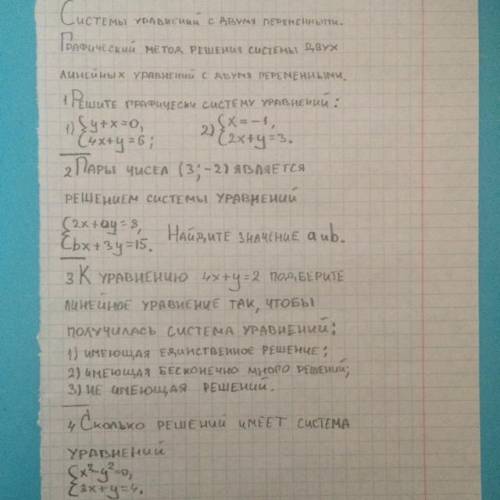 Системы уравнений с двумя переменными.
Графический метод решения системы двух
линейных уравнений с двумя переменными.
1 Решите графически систему уравнений:
1) {y+x=0, 2) {x=-1,
{4x+y=6; {2x+y=3.
2 Пары чисел (3;-2) является
решением системы уравнений
{2x+ay=8,
{bx+3y=15. Найдите значение a и b.
3 К уравнению 4x+y=2 подберите
линейное уравнение так, чтобы
получилась система уравнений:
1) имеющая единственное решение;
2) имеющая бесконечно много решений;
3) не имеющая решений.
4 Сколько решений имеет система
уравнений
{x²-y²=0,
{3x+y=4.